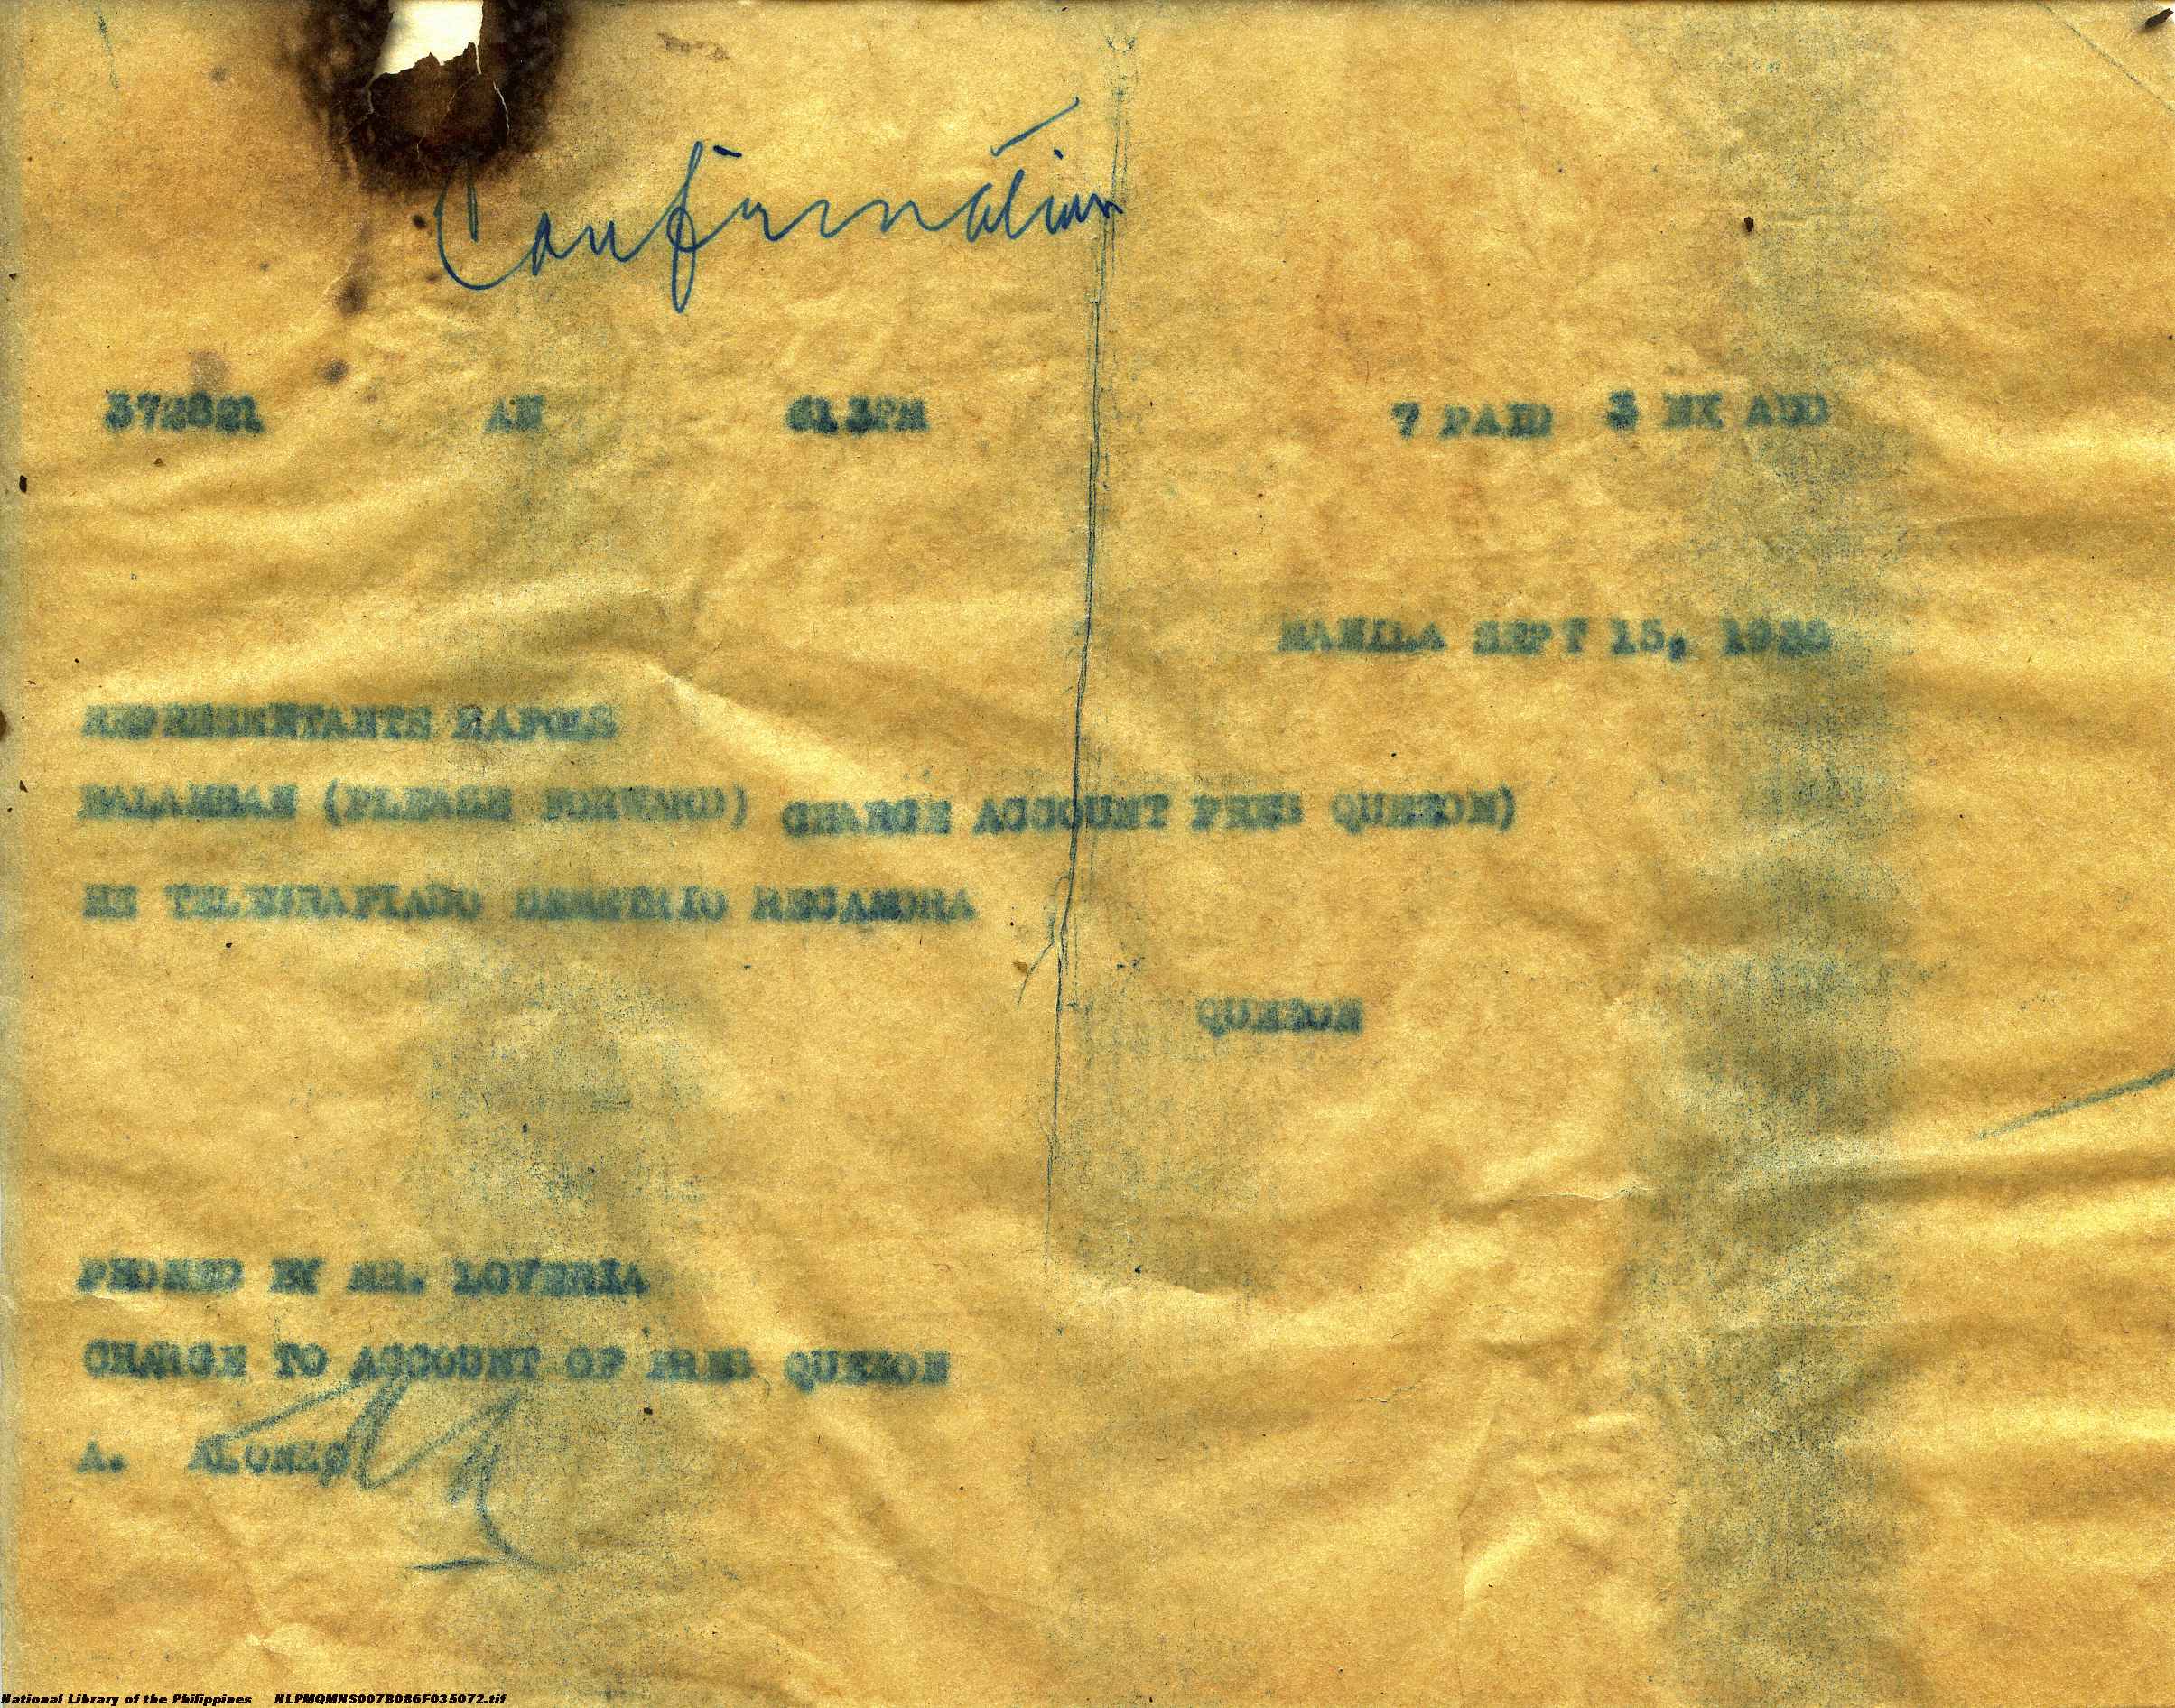 Confirmation
372821 AN 613PM 7 PAID 3 EX ADD
MANILA SEPT 15,
REPRESENTANTE
BALAMBAN (PLEASE FORWARD) CHARGE ACCOUNT PRES QUEZON)
HE TELEGRAFIADO DEMETRIO RECAMORA
QUEZON
PHONED BY MR. LOVERIA
CHARGE TO ACCOUNT OF PRES QUEZON
A.
National Library of the Philippines NLPMQMNS007B086F035072.tif